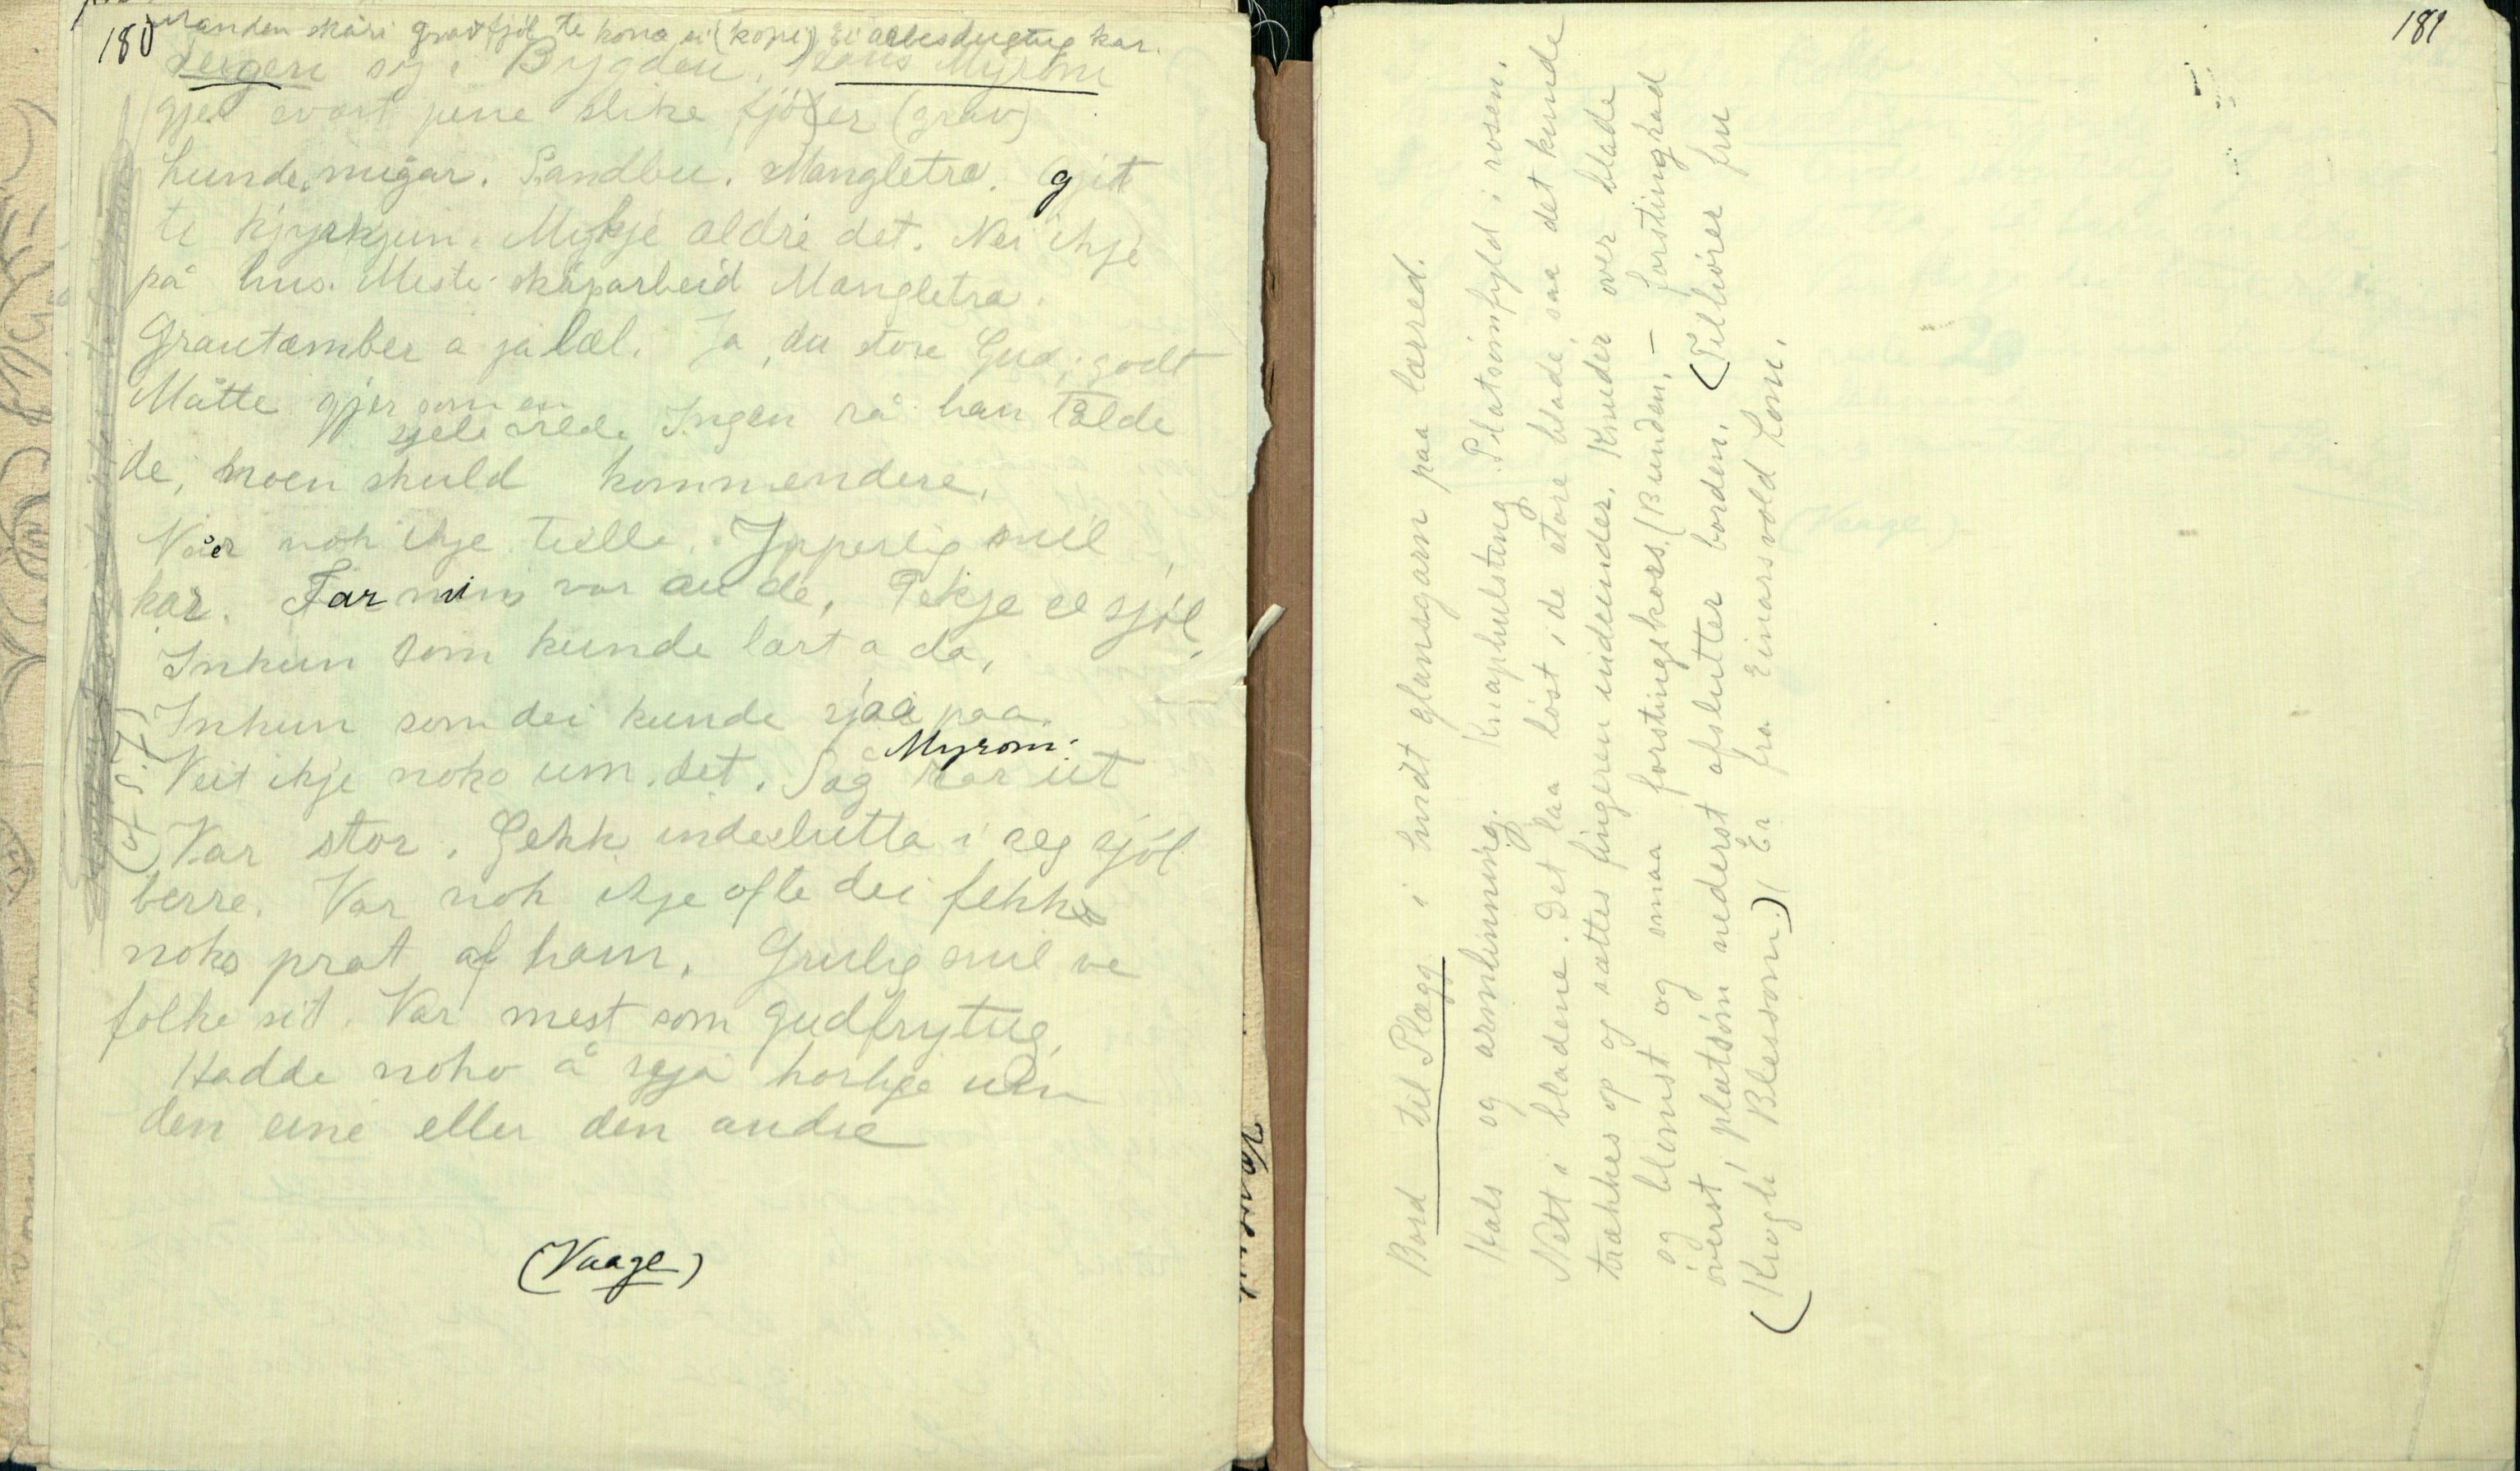 180
Manden skåri gravfjöl te kona si (kopi) Ei arbesdugtug kar.
seigen sig i Bygden. Hans Myrom
gjer svært pene slike fjöler (grav)
hunde, mugar. Sandbu. Mangletra. gjit
te kjyrkjun. Mykje aldri det. Nei ikje
på hus. Meste skåparbeid Mangletra.
Grautæmber a ja læl. Ja, du store Gud, godt
Måtte gjer som en sjøl vilde Ingen rå han tålde
de, noen skuld kommendere.
Va er noh ikje tulle. Ypperlig snil
kar. Far min var au de. Tekje el sjöl.
Inkun som kunde lært a da,
Inkun som dei kunde sjaa paa.
Veit ikje noko um det. Såg Myrom: rar ut
Var stor. Gekk indeslutta i seg sjöl
berre. Var noh ikje ofte dei fekk
noko prat af ham. Grulig snil ve
folke sit. Var mest som gudfrytug
Hadde noko å seja horlige um
den eine eller den andre
(Vaage)
181
Bord til Plægg i hvidt glansgarn paa lærred.
Hals og armlinning. Knaphulsting. Platsömfyld i rosen.
Nett i bladene. Det laa löst i de store blade, saa det kunde
trækkes op og sættes fingeren indeunder. Knuder over blade
og blomst og smaa forstingskors. (Bunden. – forstingrad
överst, platsöm nederst afslutter borden. (Tilhörer fru
(Kragh Blessom.) (Er fra Einarsvold Lom.